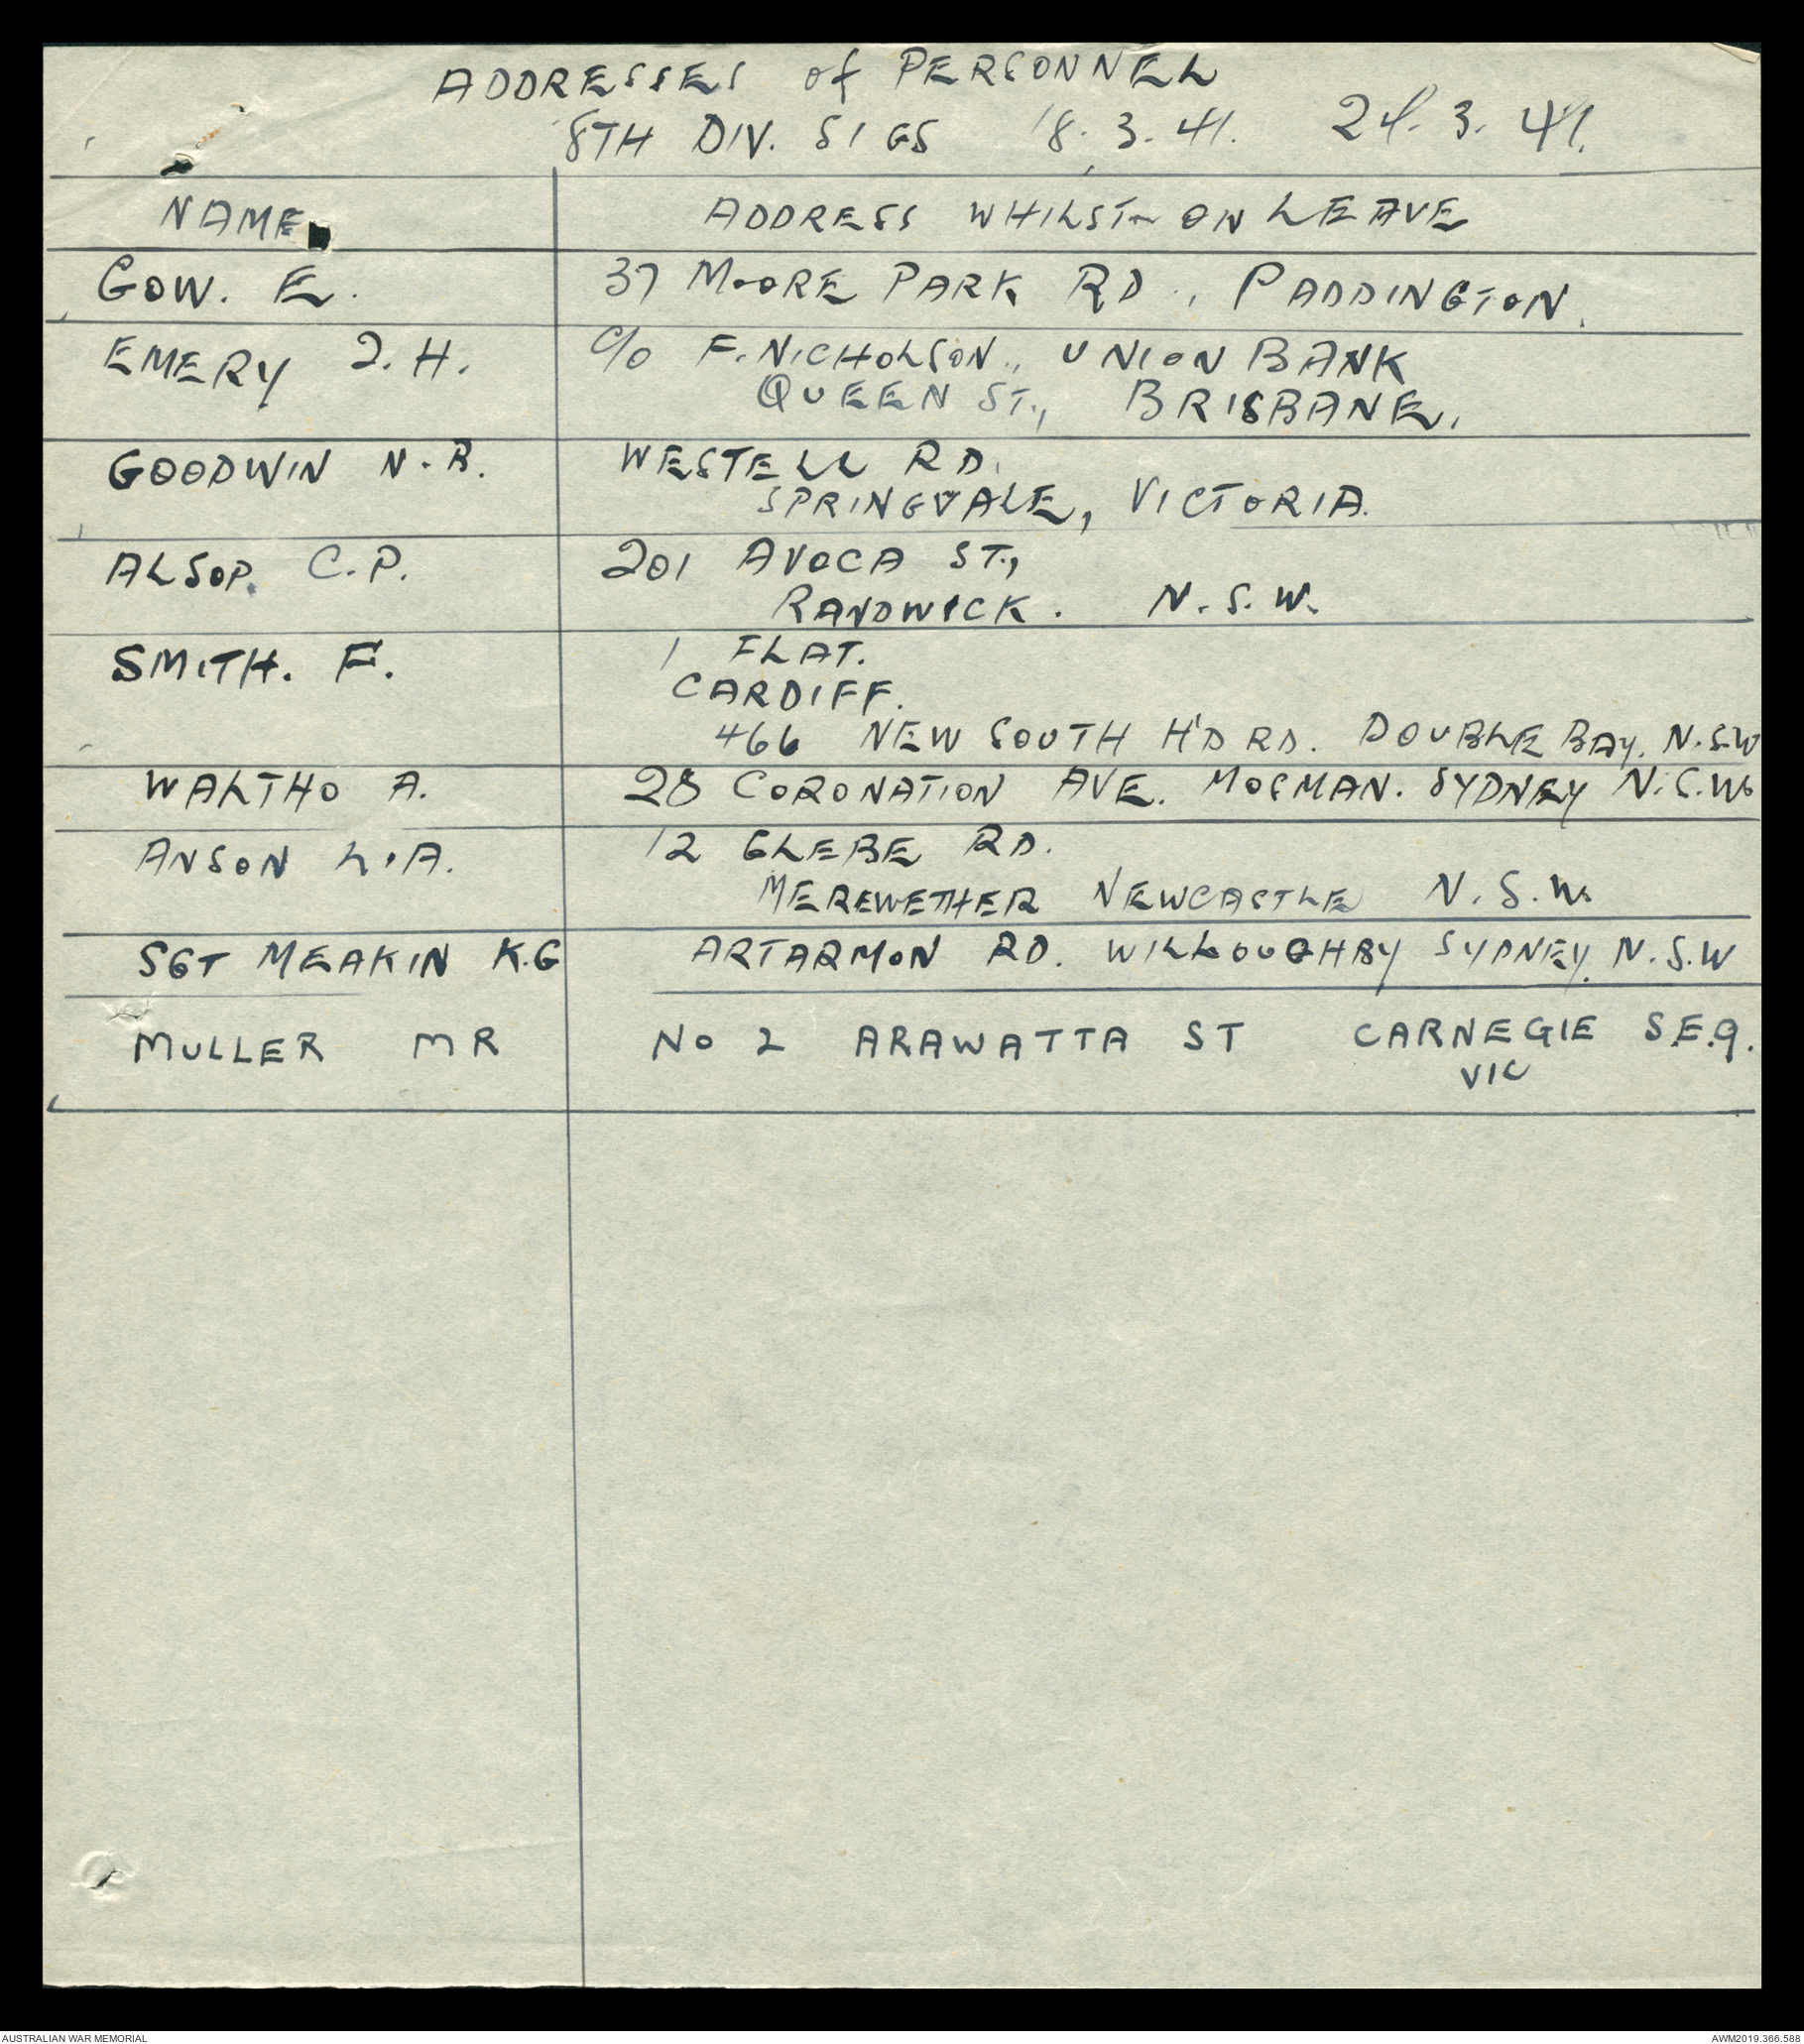 ADDRESSES of PERSONNEL
8TH DIV. SIGS 18.3.41. 24.3.41.
NAME ADDRESS WHILST ON LEAVE
GOW. E. 37 MOORE PARK RD., PADDINGTON.
EMERY J.H. C/o F. NICHOLSON., UNION BANK
QUEEN ST., BRISBANE.
GOODWIN N.B. WESTELL RD.
SPRINGVALE, VICTORIA.
ALSOP. C.P. 201 AVOCA ST.,
RANDWICK. N.S.W.
SMITH. F. 1 FLAT.
CARDIFF.
466 NEW SOUTH H'D RD. DOUBLE BAY. N.S.W
WALTHO A. 28 CORONATION AVE. MOSMAN. SYDNEY N.S.W.
ANSON L.A. 12 GLEBE RD.
MEREWETHER NEWCASTLE N.S.W.
SGT MEAKIN K.G ARTARMON RD. WILLOUGHBY SYDNEY. N.S.W
MULLER MR No 2 ARAWATTA ST CARNEGIE S.E.9.
VIC
AUSTRALIAN WAR MEMORIAL AWM2019.366.588